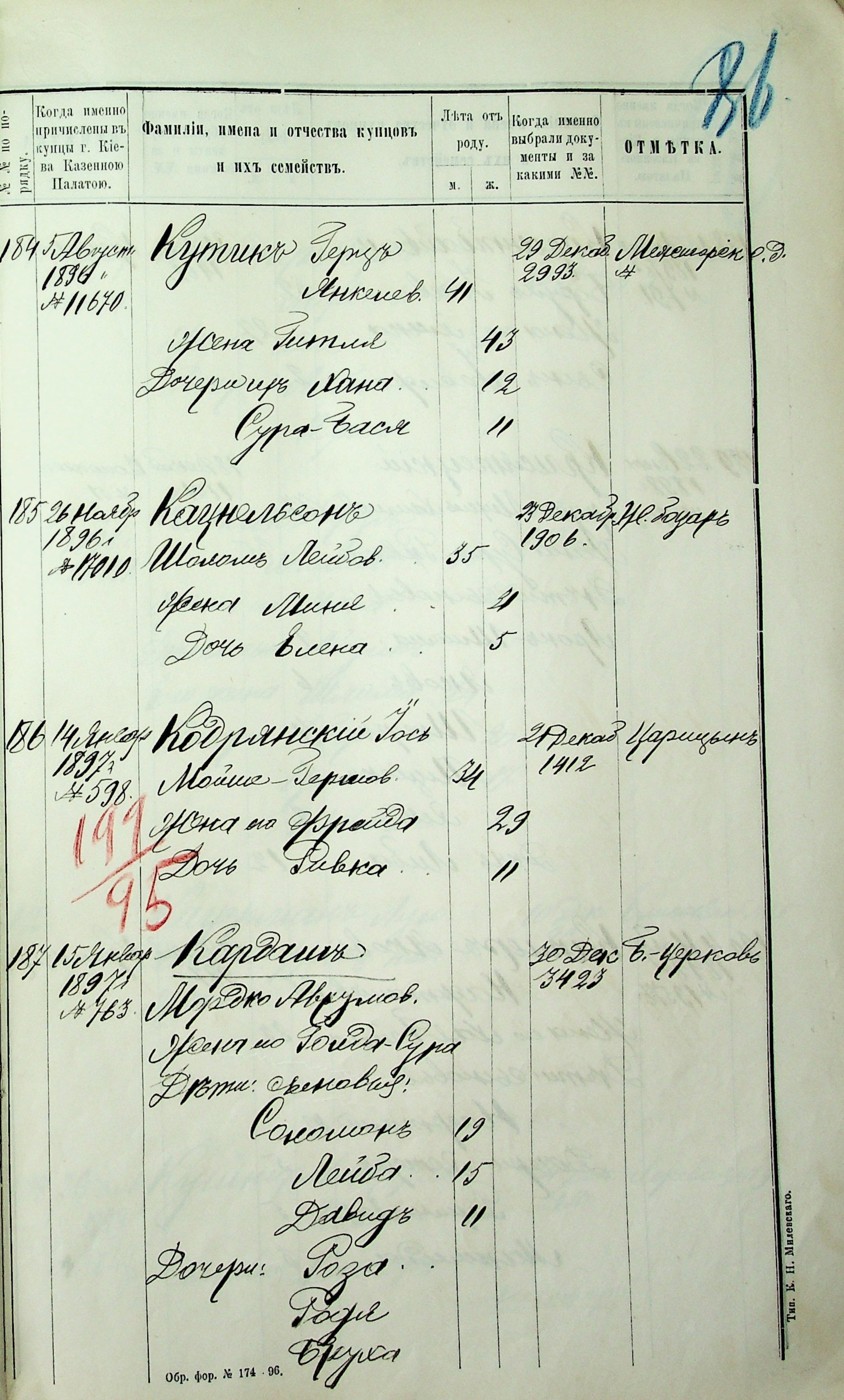 86
№№ по по-
рядку.
Когда именно
причислены въ
купцы г. Кіе-
ва Казенною
Палатою.
Фамиліи, имена и отчества купцовъ
и ихъ семействъ.
Лѣта отъ
роду.
м. ж.
Когда именно
выбрали доку-
менты и за
какими №№.
ОТМѢТКА.
184 5 Август. Кутикъ Герцъ 29 Декаб.
1896 2993.
№ 11670. Янкелев. 41
Жена Гитля 43
Дочери ихъ Хана. 12
Сура-Бася 11
185 26 Ноябр Кацнельсонъ 23 Декабр.
1896 г 1906.
№ 17010 Шоломъ Лейбов. 35
Жена Миня 21
Дочь Елена 5
186 14 Январ Кодрянскій Іось 21 Декаб Царицынъ
1897 г 1412
№ 598. Мойше-Гершов. 34
Жена его Фрейда 29
199/95
Дочь Ривка 11
187 15 Январ Кардашъ 30 Дек Б.-Церковь
1897 г 3423
№ 763. Мордко Аврумов.
Жена его Голда-Сура
Дѣти: сыновья:
Соломонъ 19
Лейба 15
Давидъ 11
Дочери: Роза
Годя
Бруха
Обр. фор. № 174-96.
Тип. К. Н. Милевскаго.